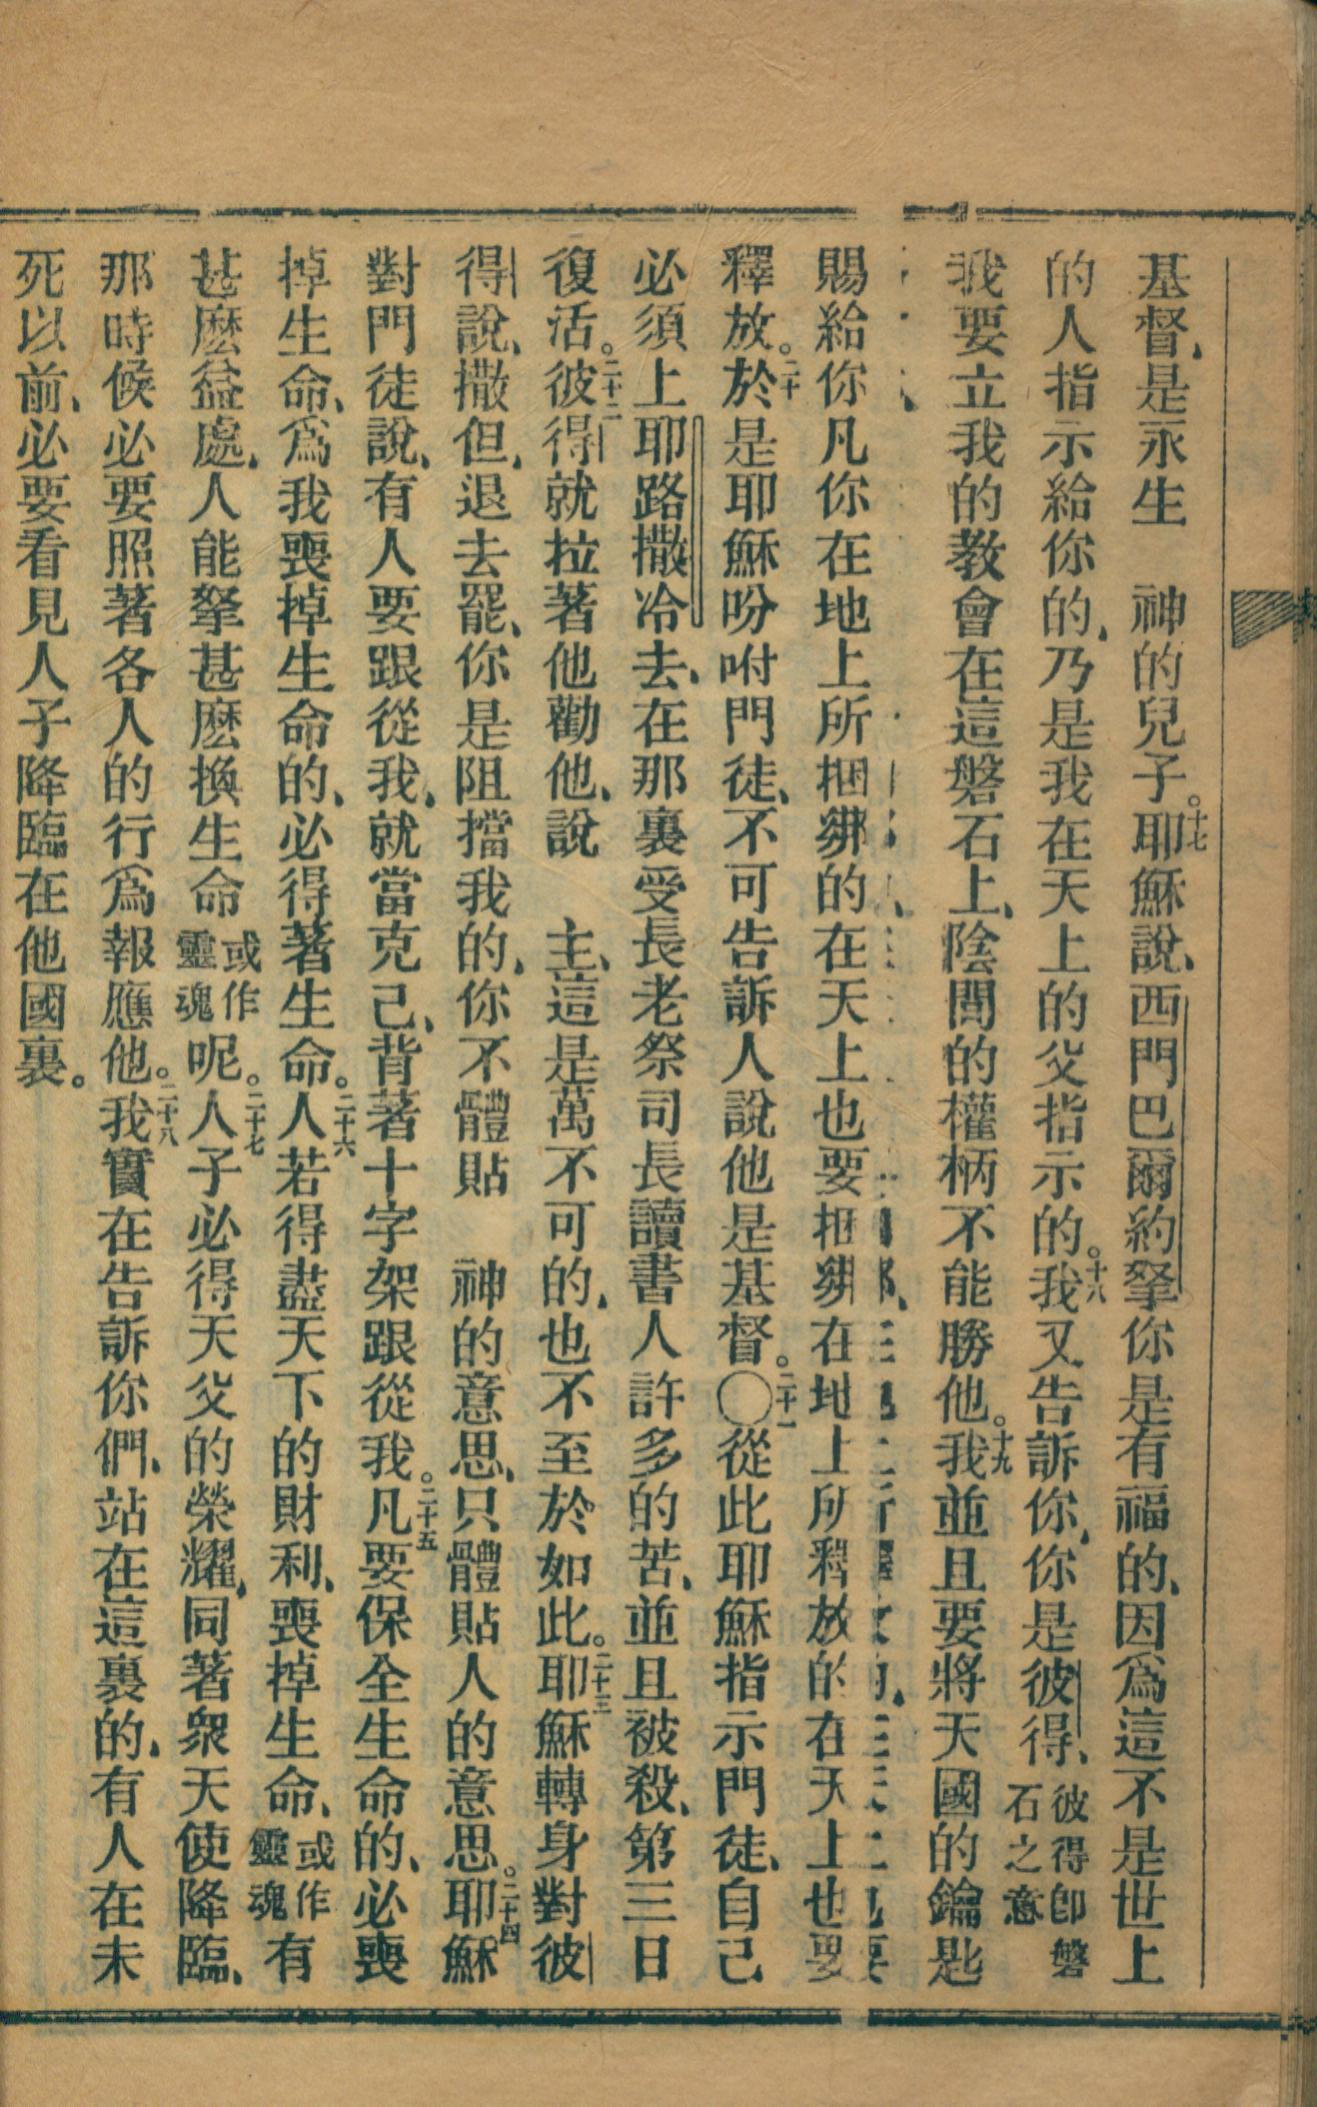 基督、是永生　神的兒子。十七耶穌說、西門巴爾約拏你是有福的、因爲這不是世上
的人指示給你的、乃是我在天上的父指示的。十八我又告訴你、你是彼得、彼得卽磐石之意
我要立我的教會在這磐石上、陰間的權柄不能勝他。十九我並且要將天國的鑰匙
賜給你凡你在地上所捆綁的在天上也要捆綁在地上所釋放的在天上也要
釋放。二十於是耶穌吩咐門徒、不可告訴人說他是基督。二十一〇從此耶穌指示門徒、自己
必須上耶路撒冷去、在那裏受長老祭司長讀書人許多的苦、並且被殺、第三日
復活。二十二彼得就拉著他勸他、說　主、這是萬不可的、也不至於如此。二十三耶穌轉身對彼
得說、撒但、退去罷、你是阻擋我的、你不體貼　神的意思、只體貼人的意思。二十四耶穌
對門徒說、有人要跟從我、就當克己、背著十字架跟從我。二十五凡要保全生命的、必喪
掉生命、爲我喪掉生命的、必得著生命。二十六人若得盡天下的財利、喪掉生命、或作靈魂有
甚麽益處、人能拏甚麽換生命或作靈魂呢。二十七人子必得天父的榮耀、同著衆天使降臨、
那時候必要照著各人的行爲報應他。二十八我實在告訴你們、站在這裏的、有人在未
死以前、必要看見人子降臨在他國裏。